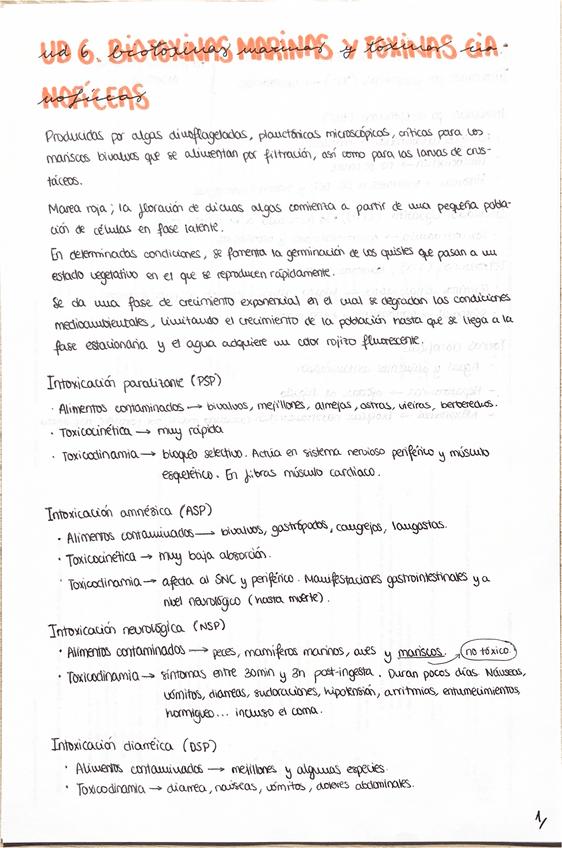 UD 6. BIOTOXINAS MARINAS Y TOXINAS CIA-
NOFÍCEAS
Producidas por algas dinoflageladas, planctónicas microscópicas, críticas para los
mariscos bivalvos que se alimentan por filtración, así como para las larvas de crus-
táceos.
Marea roja; la floración de dichas algas comienza a partir de una pequeña pobla-
ción de células en fase latente.
En determinadas condiciones, se fomenta la germinación de los quistes que pasan a un
estado vegetativo en el que se reproducen rápidamente.
Se da una fase de crecimiento exponencial en el cual se degradan las condiciones
medioambientales, limitando el crecimiento de la población hasta que se llega a la
fase estacionaria y el agua adquiere un color rojizo fluorescente.
Intoxicación paralizante (PSP)
· Alimentos contaminados → bivalvos, mejillones, almejas, ostras, vieiras, berberechos.
· Toxicocinética → muy rápida
· Toxicodinamia → bloqueo selectivo. Actúa en sistema nervioso periférico y músculo
esquelético. En fibras músculo cardíaco.
Intoxicación amnésica (ASP)
· Alimentos contaminados → bivalvos, gastrópodos, cangrejos, langostas.
· Toxicocinética → muy baja absorción.
· Toxicodinamia → afecta al SNC y periférico. Manifestaciones gastrointestinales y a
nivel neurológico (hasta muerte).
Intoxicación neurológica (NSP)
· Alimentos contaminados → peces, mamíferos marinos, aves y mariscos. → no tóxico.
· Toxicodinamia → síntomas entre 30min y 3h post-ingesta. Duran pocos días. Náuseas,
vómitos, diarreas, sudoraciones, hipotensión, arritmias, entumecimientos,
hormigueo... incluso el coma.
Intoxicación diarreica (DSP)
· Alimentos contaminados → mejillones y algunas especies.
· Toxicodinamia → diarrea, náuseas, vómitos, dolores abdominales.
1/